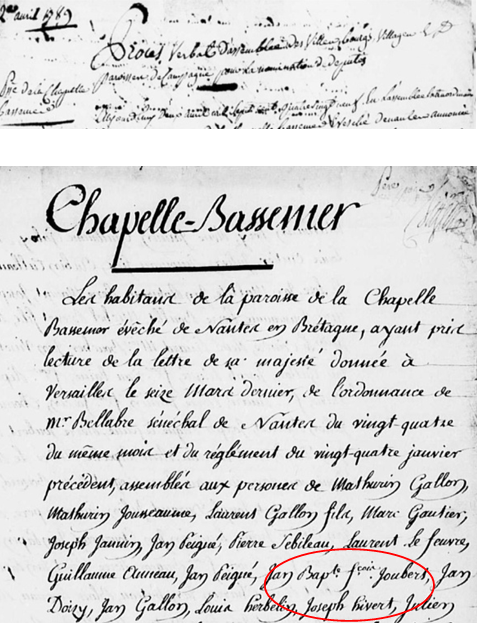 2 avril 1789
Procès Verbal d'assemblée des Villes, Bourgs, Villages &
paroisses de Campagne pour la nomination de députés
de la Chapelle
Bassemer
Chapelle-Bassemer
Les habitans de la paroisse de la Chapelle
Bassemer évêché de Nantes en Brétagne, ayant pris
lecture de la lettre de sa majesté donnée à
Versailles le seize Mars dernier, de l'ordonnance de
mr. Bellabre sénéchal de Nantes du vingt quatre
du même mois et du réglement du vingt-quatre janvier
précédent, assemblés aux persones de Mathurin Gallon,
Mathurin Jousseaume, Laurent Gallon fils, Marc Gautier,
Joseph Janvin, Jan Peigné, Pierre Sebileau, Laurent le feuvre,
Guillaume Euneau, Jan Peigné, Jan Bapte. fcois. Joubert, Jan
Doisy, Jan Gallon, Louis herbelin, Joseph hivert, Julien